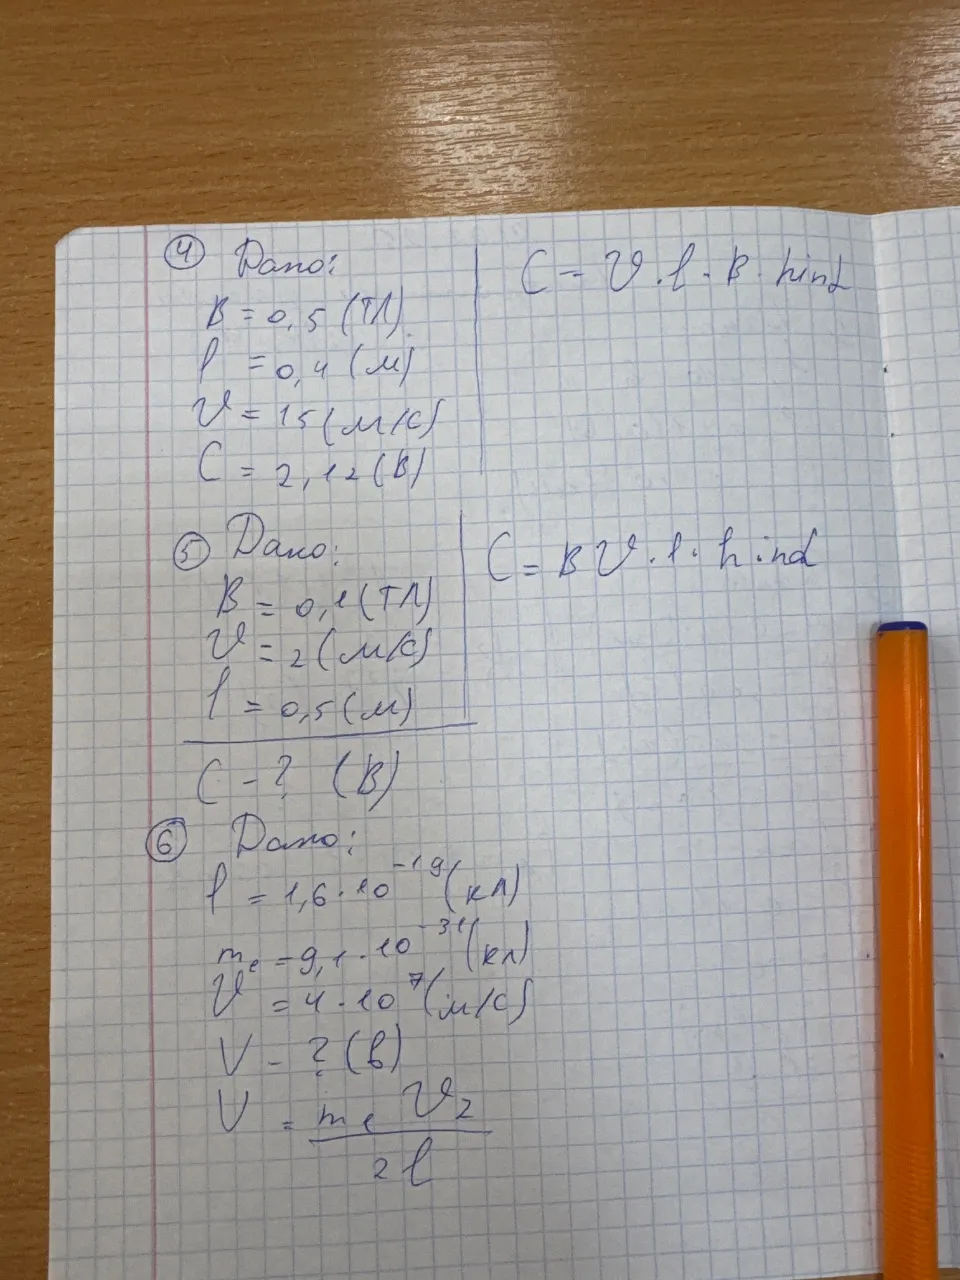 ④ Дано:
B = 0,5 (Тл)
l = 0,4 (м)
V = 15 (м/с)
C = 2,12 (В)
C = V · l · B · hind
⑤ Дано:
B = 0,1 (Тл)
V = 2 (м/с)
l = 0,5 (м)
C - ? (В)
C = B V · l · h ind
⑥ Дано:
l = 1,6 · 10⁻¹⁹ (кл)
mₑ = 9,1 · 10⁻³¹ (кл)
V = 4 · 10⁷ (м/с)
V - ? (в)
V = mₑ V₂
2 l